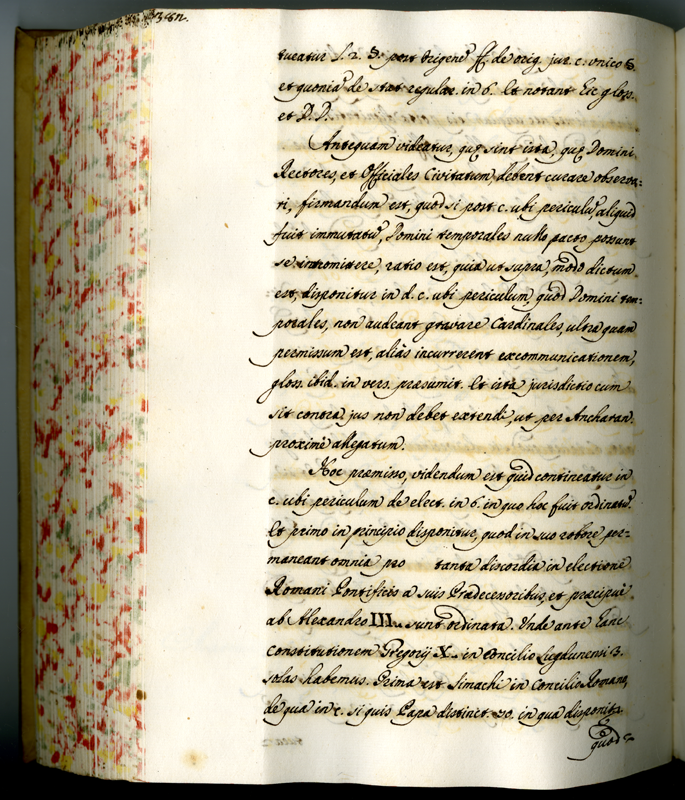 tueatur §. 2. S. post Origene' ff. de orig. jur. c. unico S.
et quonia' de stat regular. in 6. Et notant hic gloss.
et D.D.
Antequam videatur, quę sint ista, quę Domini
Rectores, et Officiales Civitatum, debent curare observa=
ri, firmandum est, quod si post c. ubi periculu', aliquid
fuit immutatu', Domini temporales nullo pacto possunt
se intromittere, ratio est, quia ut supra, modo dictum
est, disponitur in d. c. ubi periculum, quod Domini tem=
porales, non audeant gravare Cardinales, ultra quam
permissum est, aliàs incurrerent excommunicationem,
gloss. ibid. in vers. præsumit. Et ista jurisdictio cum
sit contra jus non debet extendi, ut per Ancharan.
proximè allegatum.
Hoc præmisso, videndum est quid contineatur in
c. ubi periculum de elect. in 6. in quo hoc fuit ordinatu'.
Et primo in principio disponitur, quod in suo robore per=
maneant omnia pro tanta discordia in electione
Romani Pontificis a suis Prædecessoribus, et præcipuè
ab Alexandro III. sunt ordinata. Unde ante hanc
Constitutionem Gregorij X. in Concilio Lugdunensi 3.
solas habemus. Prima est Simachi in Concilio Romano,
de qua in c. si quis Papa distinct. 70. in qua disponit.
quod